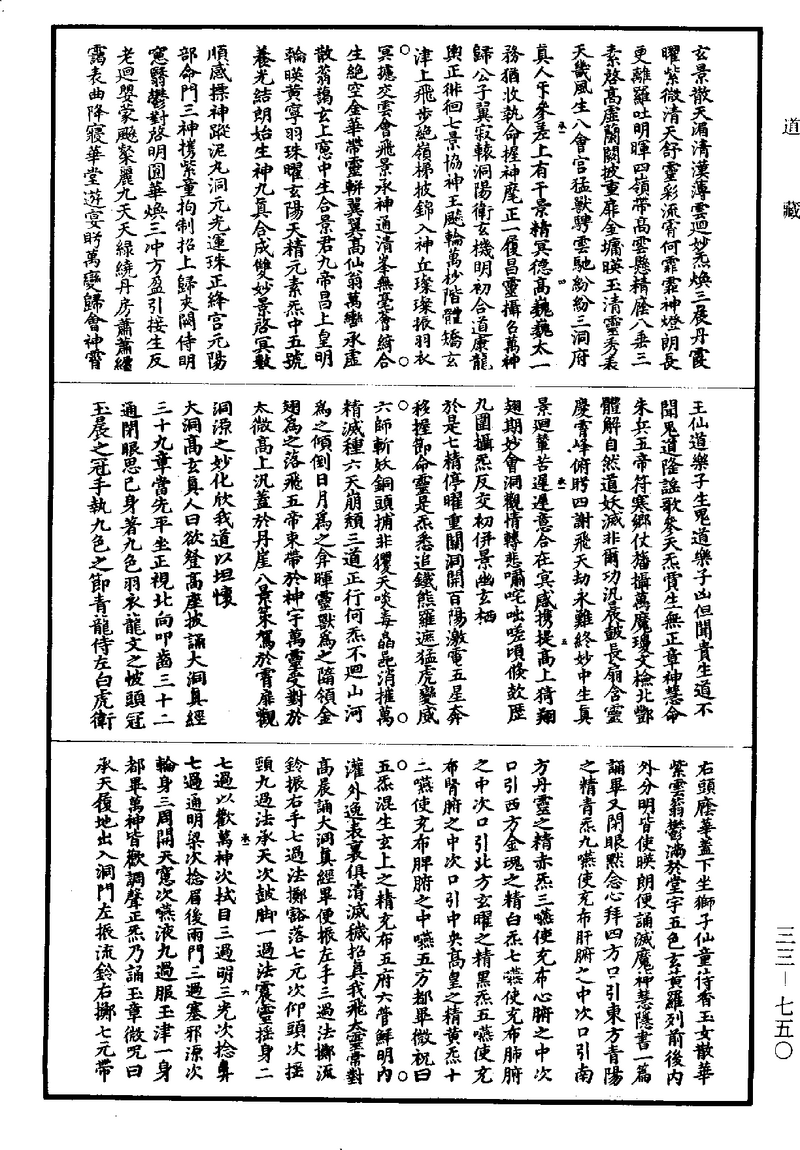 道藏
玄景散天湄清漢薄雲迴妙炁煥三晨丹霞
曜紫微清天舒靈彩流霄何霏霏神燈朗長
更離羅吐明暉四嶺帶高雲懸精廕八垂三
素啓高虛蘭闕披重扉金墉暎玉清靈秀表
天畿風生八會宮猛獸騁雲馳紛紛三洞府
真人下參差上有干景精冥德高巍巍太一
務猶收執命握神麾正一履昌靈攝召萬神
歸公子翼寂轅洞陽衛玄機明初合道康龍
輿正徘徊七景協神王飈輪萬杪階體矯玄
津上飛步絕嶺梯披錦入神丘璨璨振羽衣
冥攄交雲會飛景承神通清峯無毫薈綺合
生絕空金華帶靈軿翼翼高仙翁萬轡承虛
散蓊藹玄上窻中生合景君九帝昌上皇明
輪暎黃寧羽珠曜玄陽天精元素炁中五號
養光結朗始生神九真合成雙妙景啓冥數
順感操神蹤泥丸洞元光運珠正絳宮元陽
部命門三神攜紫童拘制招上歸夾闕侍明
窻翳鬱對啓明圓華煥三冲方盈引接生反
老迴嬰蒙飈粲麗九天天綠繞丹房蕭蕭纏
靄表曲降寢華堂遊宴眄萬變歸會神霄
王仙道樂子生鬼道樂子凶但聞貴生道不
聞鬼道隆謠歌參天炁賣生無正章神慧命
朱兵五帝符寒鄉仗旛攝萬魔瓊文檢北酆
體解自然道妖滅非爾功汎晨皷長扇含靈
慶霄峰俯眄四謝飛天劫永難終妙中生真
景迴輦苦遲遲意合在冥感携提高上猗翔
翅期妙會洞觀情轉悲嘯咤咄嗟頃倏歘歷
九圍攝炁反交初伊景幽玄栖
於是七精停曜重關洞開百陽激電五星奔
移握節命靈是炁悉追鐵熊羅遮猛虎變威
六師斬妖銅頭捕非玃天啖毒晶毦消摧萬
精滅種六天崩頹三道正行何炁不迴山河
為之傾倒日月為之弇暉靈獸為之隨領金
翅為之落飛五帝束帶於神宇萬靈受對於
太微高上汎蓋於丹崖八景策駕於霄扉觀
洞源之妙化欣我道以坦懷
大洞高玄真人曰欲登高座披誦大洞真經
三十九章當先平坐正視北向叩齒三十二
通閉眼思己身著九色羽衣龍文之帔頭冠
玉晨之冠手執九色之節青龍侍左白虎衛
右頭廕華蓋下坐獅子仙童侍香玉女散華
紫雲蓊鬱滿於堂宇五色玄黃羅列前後內
外分明皆使暎朗便誦滅魔神慧隱書一篇
誦畢又閉眼默念心拜四方口引東方青陽
之精青炁九嚥使充布肝腑之中次口引南
方丹靈之精赤炁三嚥使充布心腑之中次
口引西方金魂之精白炁七嚥使充布肺腑
之中次口引北方玄曜之精黑炁五嚥使充
布腎腑之中次口引中央高皇之精黃炁十
二嚥使充布脾腑之中嚥五方都畢微祝曰
五炁混生玄上之精充布五府六嘗鮮明內
灌外逸表裏俱清滅穢招真我飛太靈常對
高晨誦大洞真經畢便振左手三過法擲流
鈴振右手七過法擲豁落七元次仰頭次搖
頸九過法承天次皷脚一過法震靈搖身二
七過以歡萬神次拭目三過明三光次捻鼻
七過通明梁次捻眉後兩門三過塞邪源次
輪身三周開天窻次嚥液九過服玉津一身
都畢萬神皆歡調聲正炁乃誦玉章微呪曰
承天履地出入洞門左振流鈴右擲七元帶
三三－七五〇